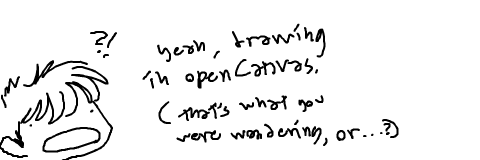 ?!
yeah, drawing
in openCanvas.
(that's what you
were wondering, or...?)